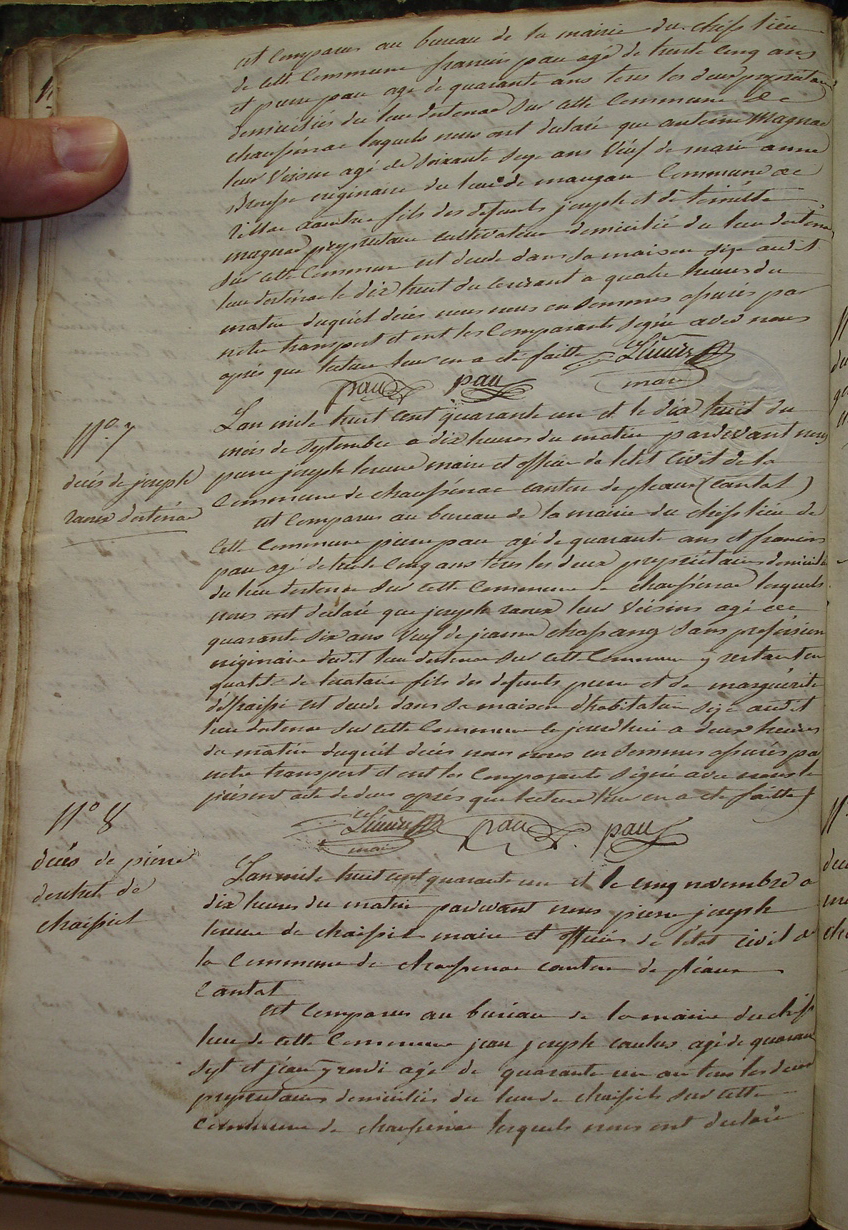 est comparus au bureau de la mairie du chef lieu
de cette Commune francois pau agé de trente cinq ans
et pierre pau agé de quarante ans tous les deux propriétaires
domiciliés du lieu d'ostenac sur cette Commune de
chaussenac lesquels nous ont declaré que antoine magnac
leur voisin agé de soixante seize ans veuf de marie anne
originaire du lieu de Commune de
fils des defunts joseph et de
magnac propriétaire cultivateur domicilié du lieu d'ostenac
sur cette Commune est decedé dans sa maison size audit
lieu d'ostenac le dix huit du courant a quatre heures du
matin duquel deces nous nous en sommes assurés par
notre transport et ont les comparants signé avec nous
après que lecture leur en a eté faitte
maire
pau pau
L'an mile huit cent quarante un et le dix huit du
mois de septembre a dix heures du matin pardevant nous
pierre joseph maire et officier de l'etat civil de la
Commune de chaussenac canton de pleaux (cantal)
N° 7
décés de joseph
d'ostenac
est comparus au bureau de la mairie du chef lieu de
cette Commune pierre pau agé de quarante ans et francois
pau agé de trente cinq ans tous les deux propriétaires domiciliés
du lieu d'ostenac sur cette Commune de chaussenac lesquels
nous ont declaré que joseph leur voisin agé de
quarante six ans veuf de jeanne chassang sans profession
originaire dudit lieu d'ostenac sur cette Commune y restant en
qualité de fils des defunts pierre et de marguerite
est decedé dans sa maison d'habitation size audit
lieu d'ostenac sur cette Commune a deux heures
du matin duquel décés nous nous en sommes assurés par
notre transport et ont les comparants signé avec nous le
présent acte de deces après que lecture leur en a eté faitte
maire pau pau
N° 8
décés de pierre
de
chaissiel
L'an mile huit cent quarante un et le cinq novembre a
dix heures du matin pardevant nous pierre joseph
de maire et officier de l'etat civil de
la Commune de chaussenac canton de pleaux
Cantal
est comparus au bureau de la mairie du chef
lieu de cette Commune jean joseph agé de quarante
sept et jean agé de quarante un an tous les deux
propriétaires domiciliés du lieu de sur cette
Commune de chaussenac lesquels nous ont declaré